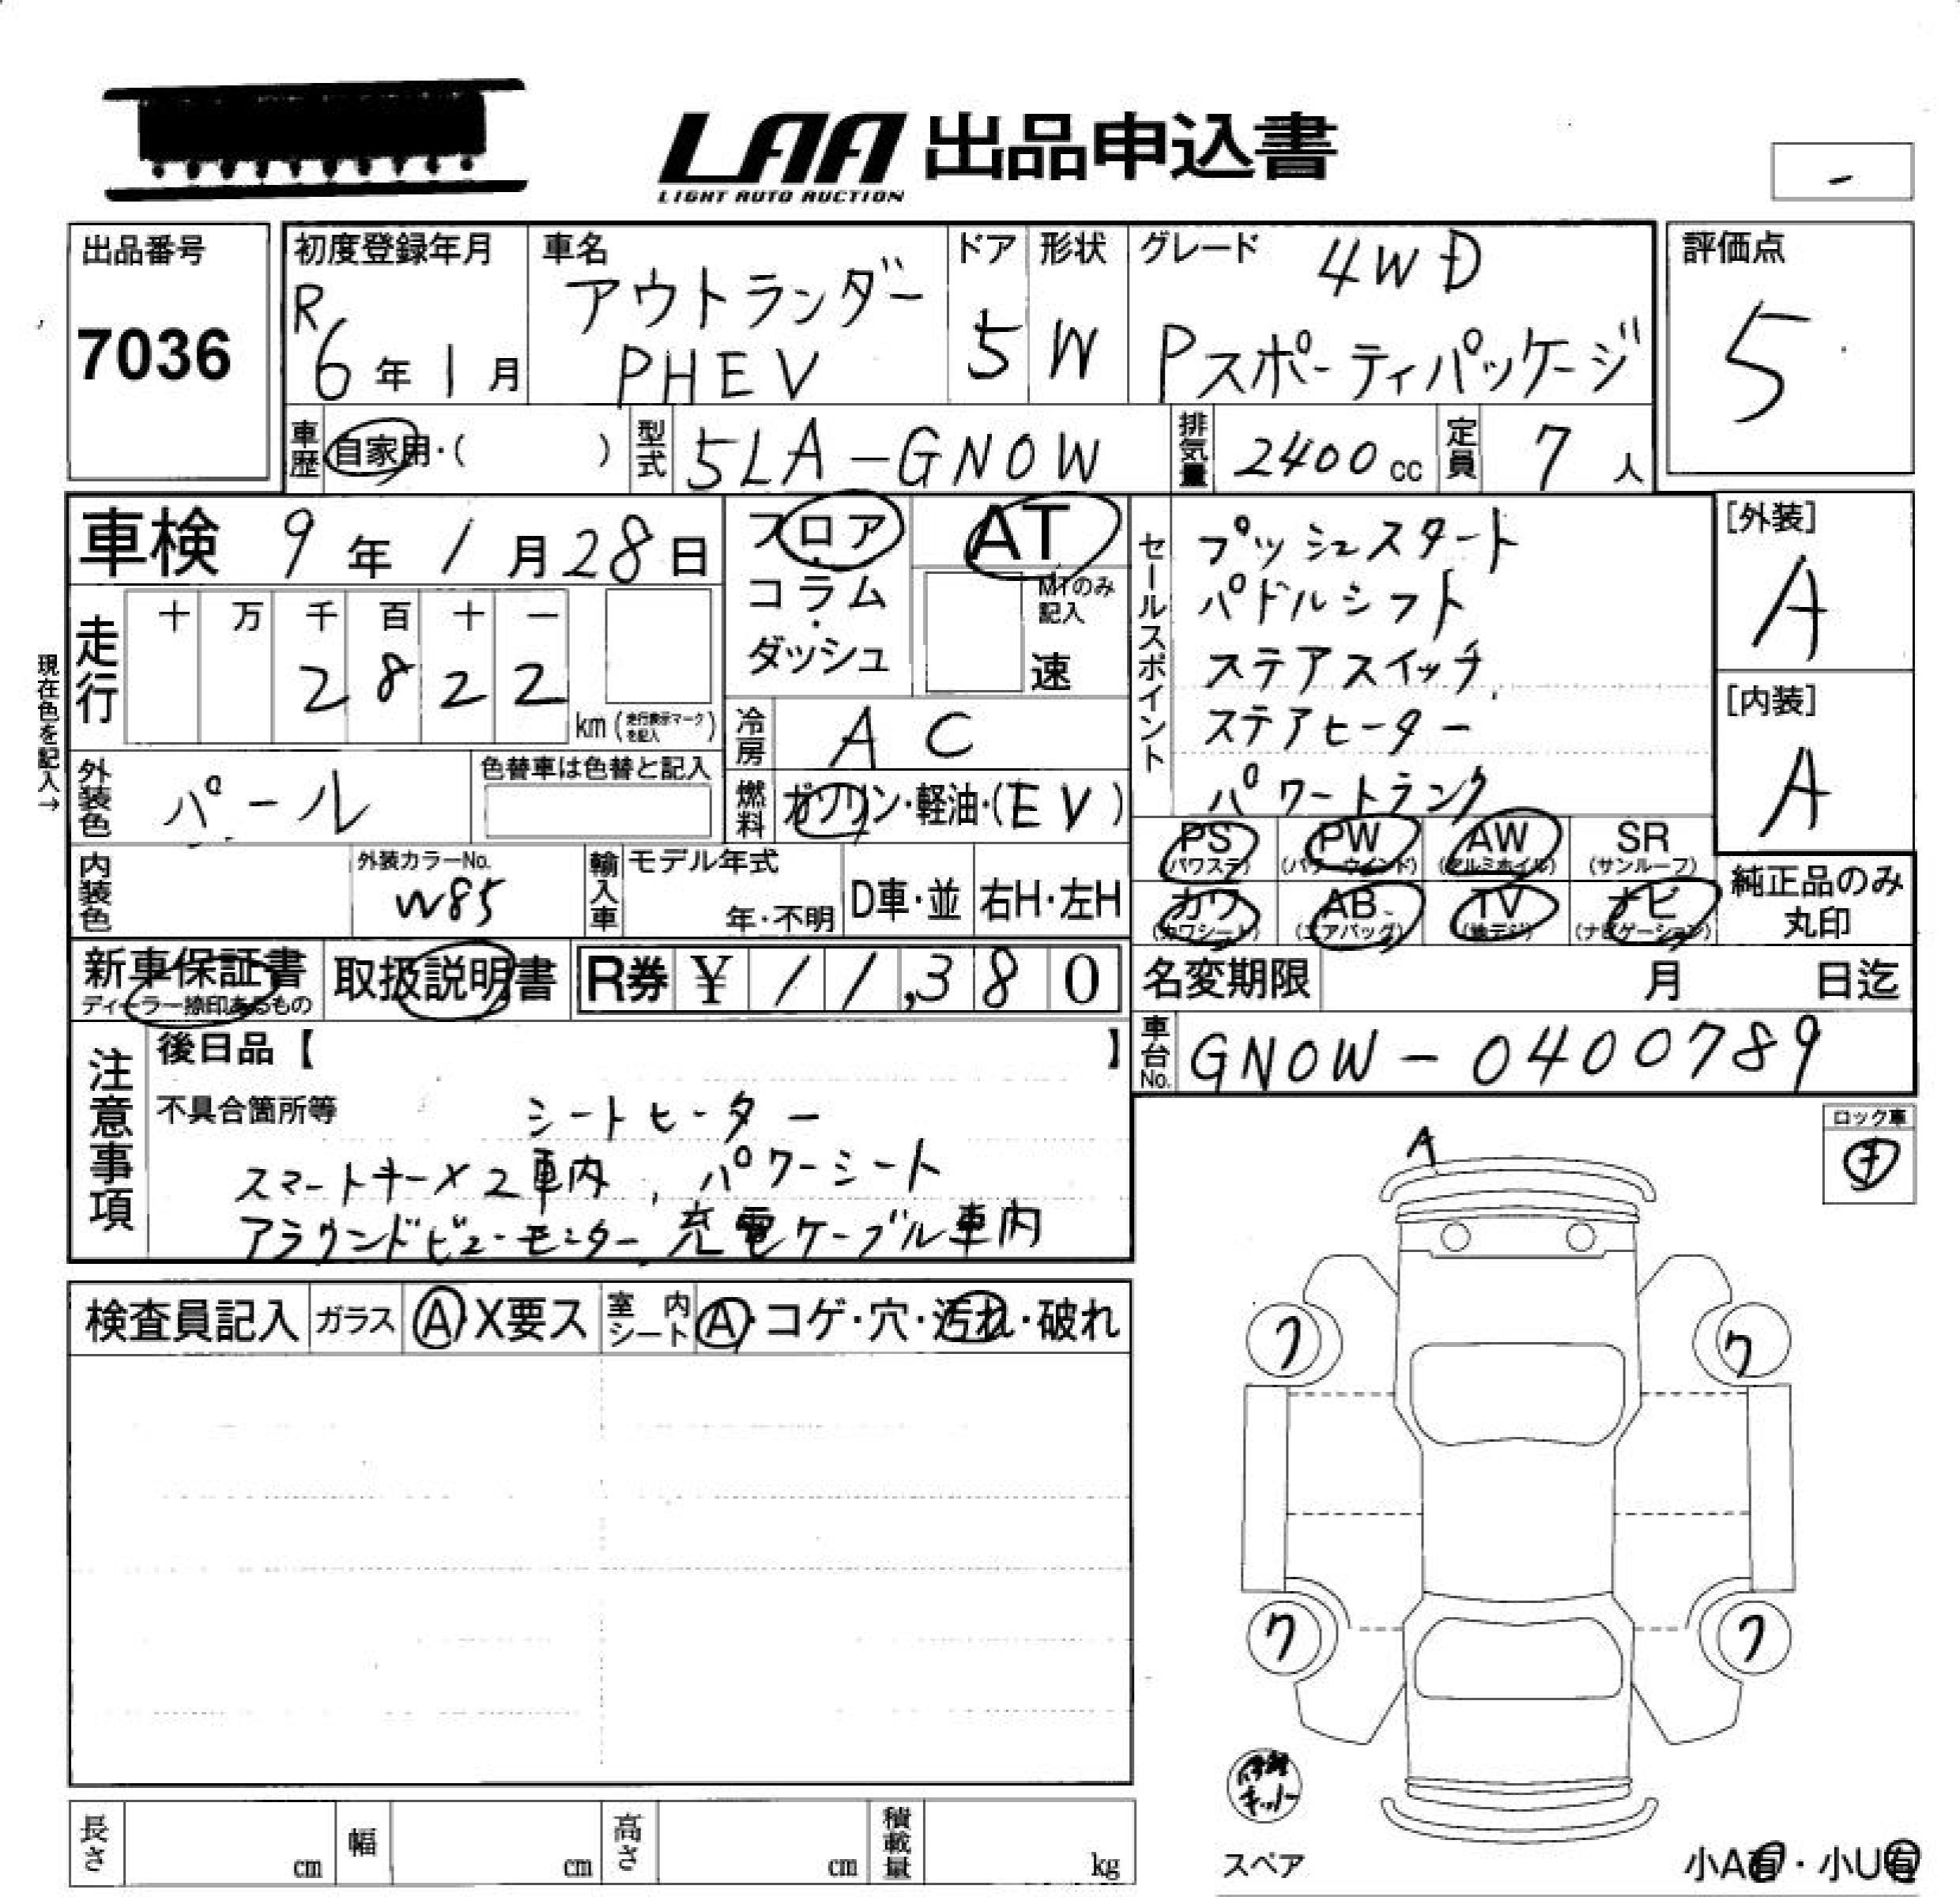 LAA 出品申込書
LIGHT AUTO AUCTION
-
出品番号
7036
初度登録年月
R6年1月
車名
アウトランダー
PHEV
ドア
5
形状
W
グレード
4WD
Pスポーティパッケージ
評価点
5
車歴 自家用・( )
型式 5LA-GN0W
排気量 2400cc
定員 7人
車検 9年1月28日
フロア・
コラム・
ダッシュ
AT
MTのみ
記入
速
セールスポイント
プッシュスタート
パドルシフト
ステアスイッチ
ステアヒーター
パワートランク
[外装]
A
[内装]
A
現在色を記入→
走行
十 万 千 百 十 一
2 8 2 2
km(走行表示マークを記入)
冷房 AC
外装色 パール
色替車は色替と記入
燃料 ガソリン・軽油・(EV)
PS AW PW SR
(パワステ) (パワーウインド) (アルミホイル) (サンルーフ)
カワ AB TV ナビ
(カワシート) (エアバッグ) (地デジ) (ナビゲーション)
純正品のみ
丸印
内装色
外装カラーNo.
W85
輸入車 モデル年式
年・不明
D車・並 右H・左H
新車保証書
ディーラー捺印あるもの
取扱説明書
R券 ¥ 11,380
名変期限 月 日迄
車台No. GN0W-0400789
注意事項
後日品【 】
不具合箇所等
シートヒーター
スマートキー×2車内, パワーシート
アラウンドビューモニター, 充電ケーブル車内
ロック車
A
検査員記入 ガラス A X要ス 室内シート A・コゲ・穴・汚れ・破れ
ワ ワ
ワ ワ
キット
スペア
小A有・小U有
長さ cm 幅 cm 高さ cm 積載量 kg